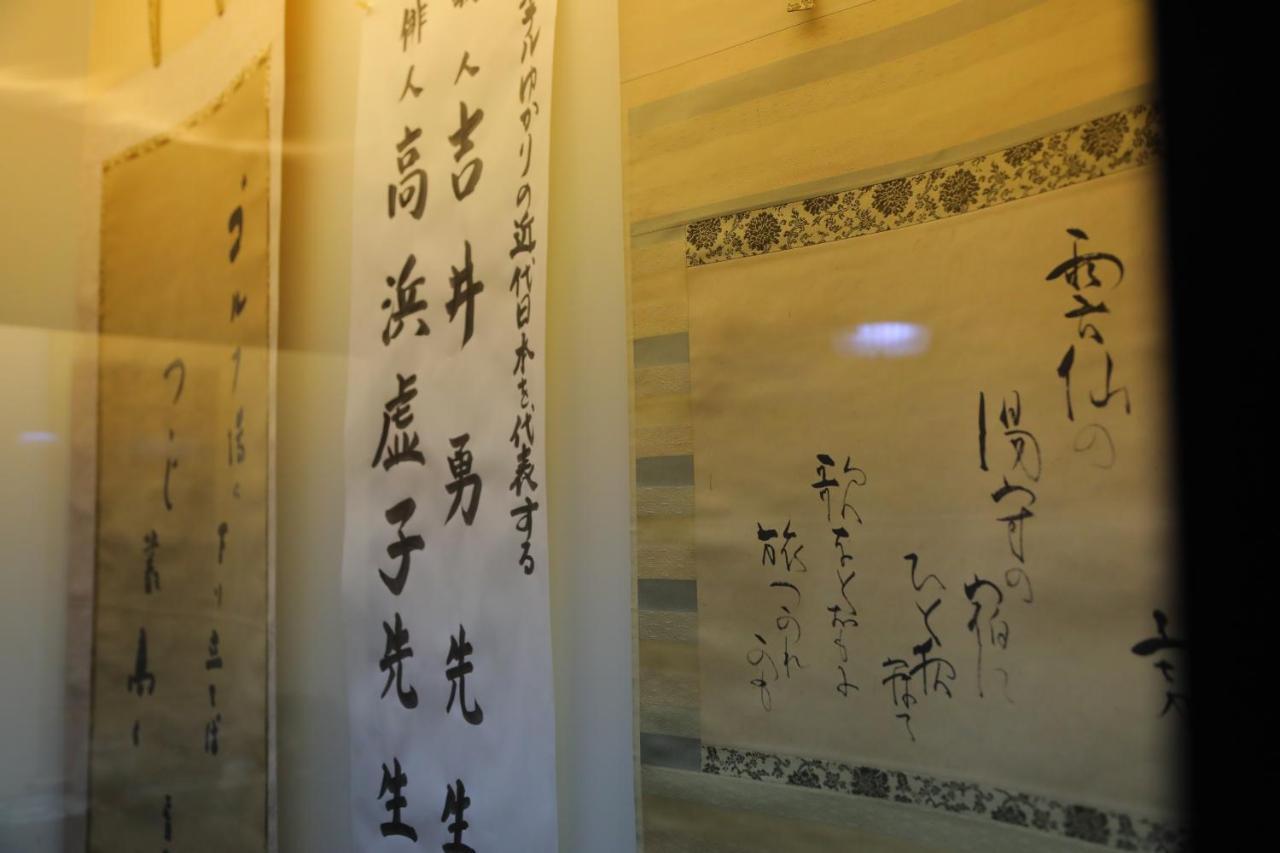 雲仙の
湯守の
宿に
ひと夜
寝て
歌など
おもふ
旅つかれ
かも
勇
テルゆかりの近代日本を代表する
人吉井勇先生
俳人高浜虚子先生
ゴルフ場に下り立てば
つゝじ叢高し